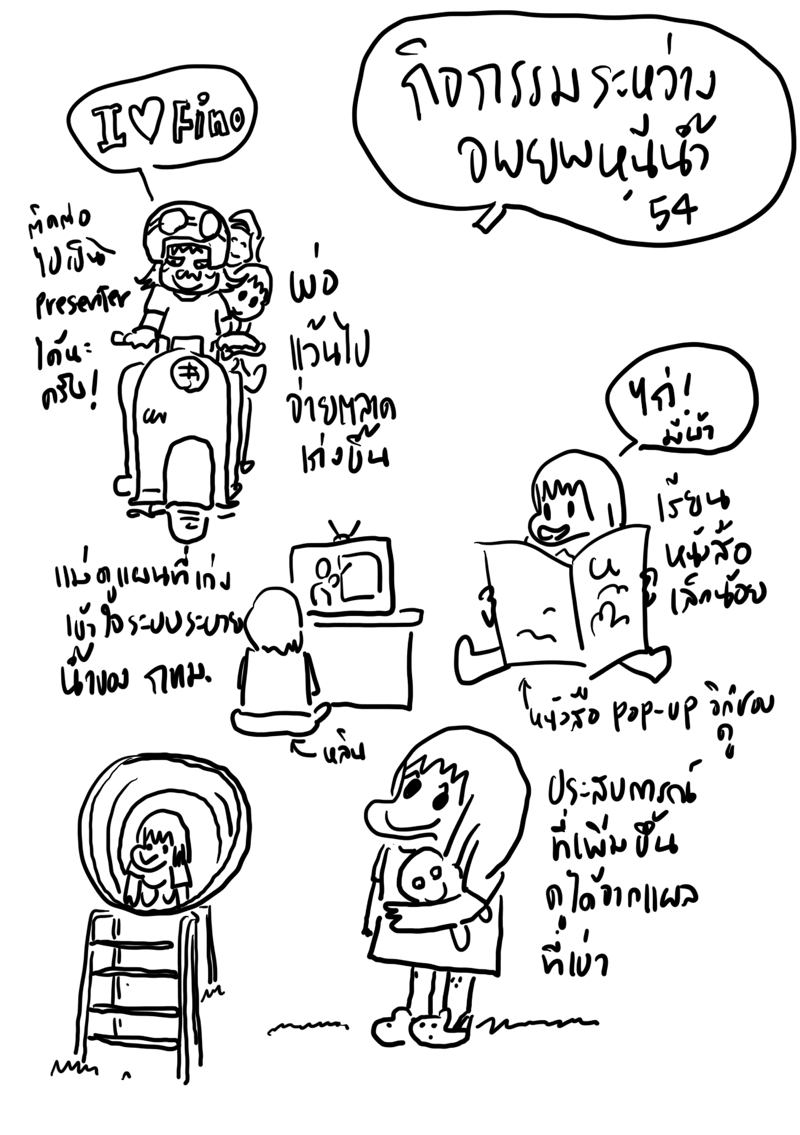 กิจกรรมระหว่าง
อพยพหนีน้ำ
54
I ♡ Fino
ติดต่อ
ไปเป็น
Presenter
ได้นะ
ครับ!
พ่อ
แว้นไป
จ่ายตลาด
เก่งขึ้น
ไก่!
มีม้า
เรียน
หนังสือ
เล็กน้อย
แม่ดูแผนที่เก่ง
เข้าใจระบบระบาย
น้ำของ กทม.
หลิน
หนังสือ pop-up
ดู
ประสบการณ์
ที่เพิ่มขึ้น
ดูได้จากแผล
ที่เข่า